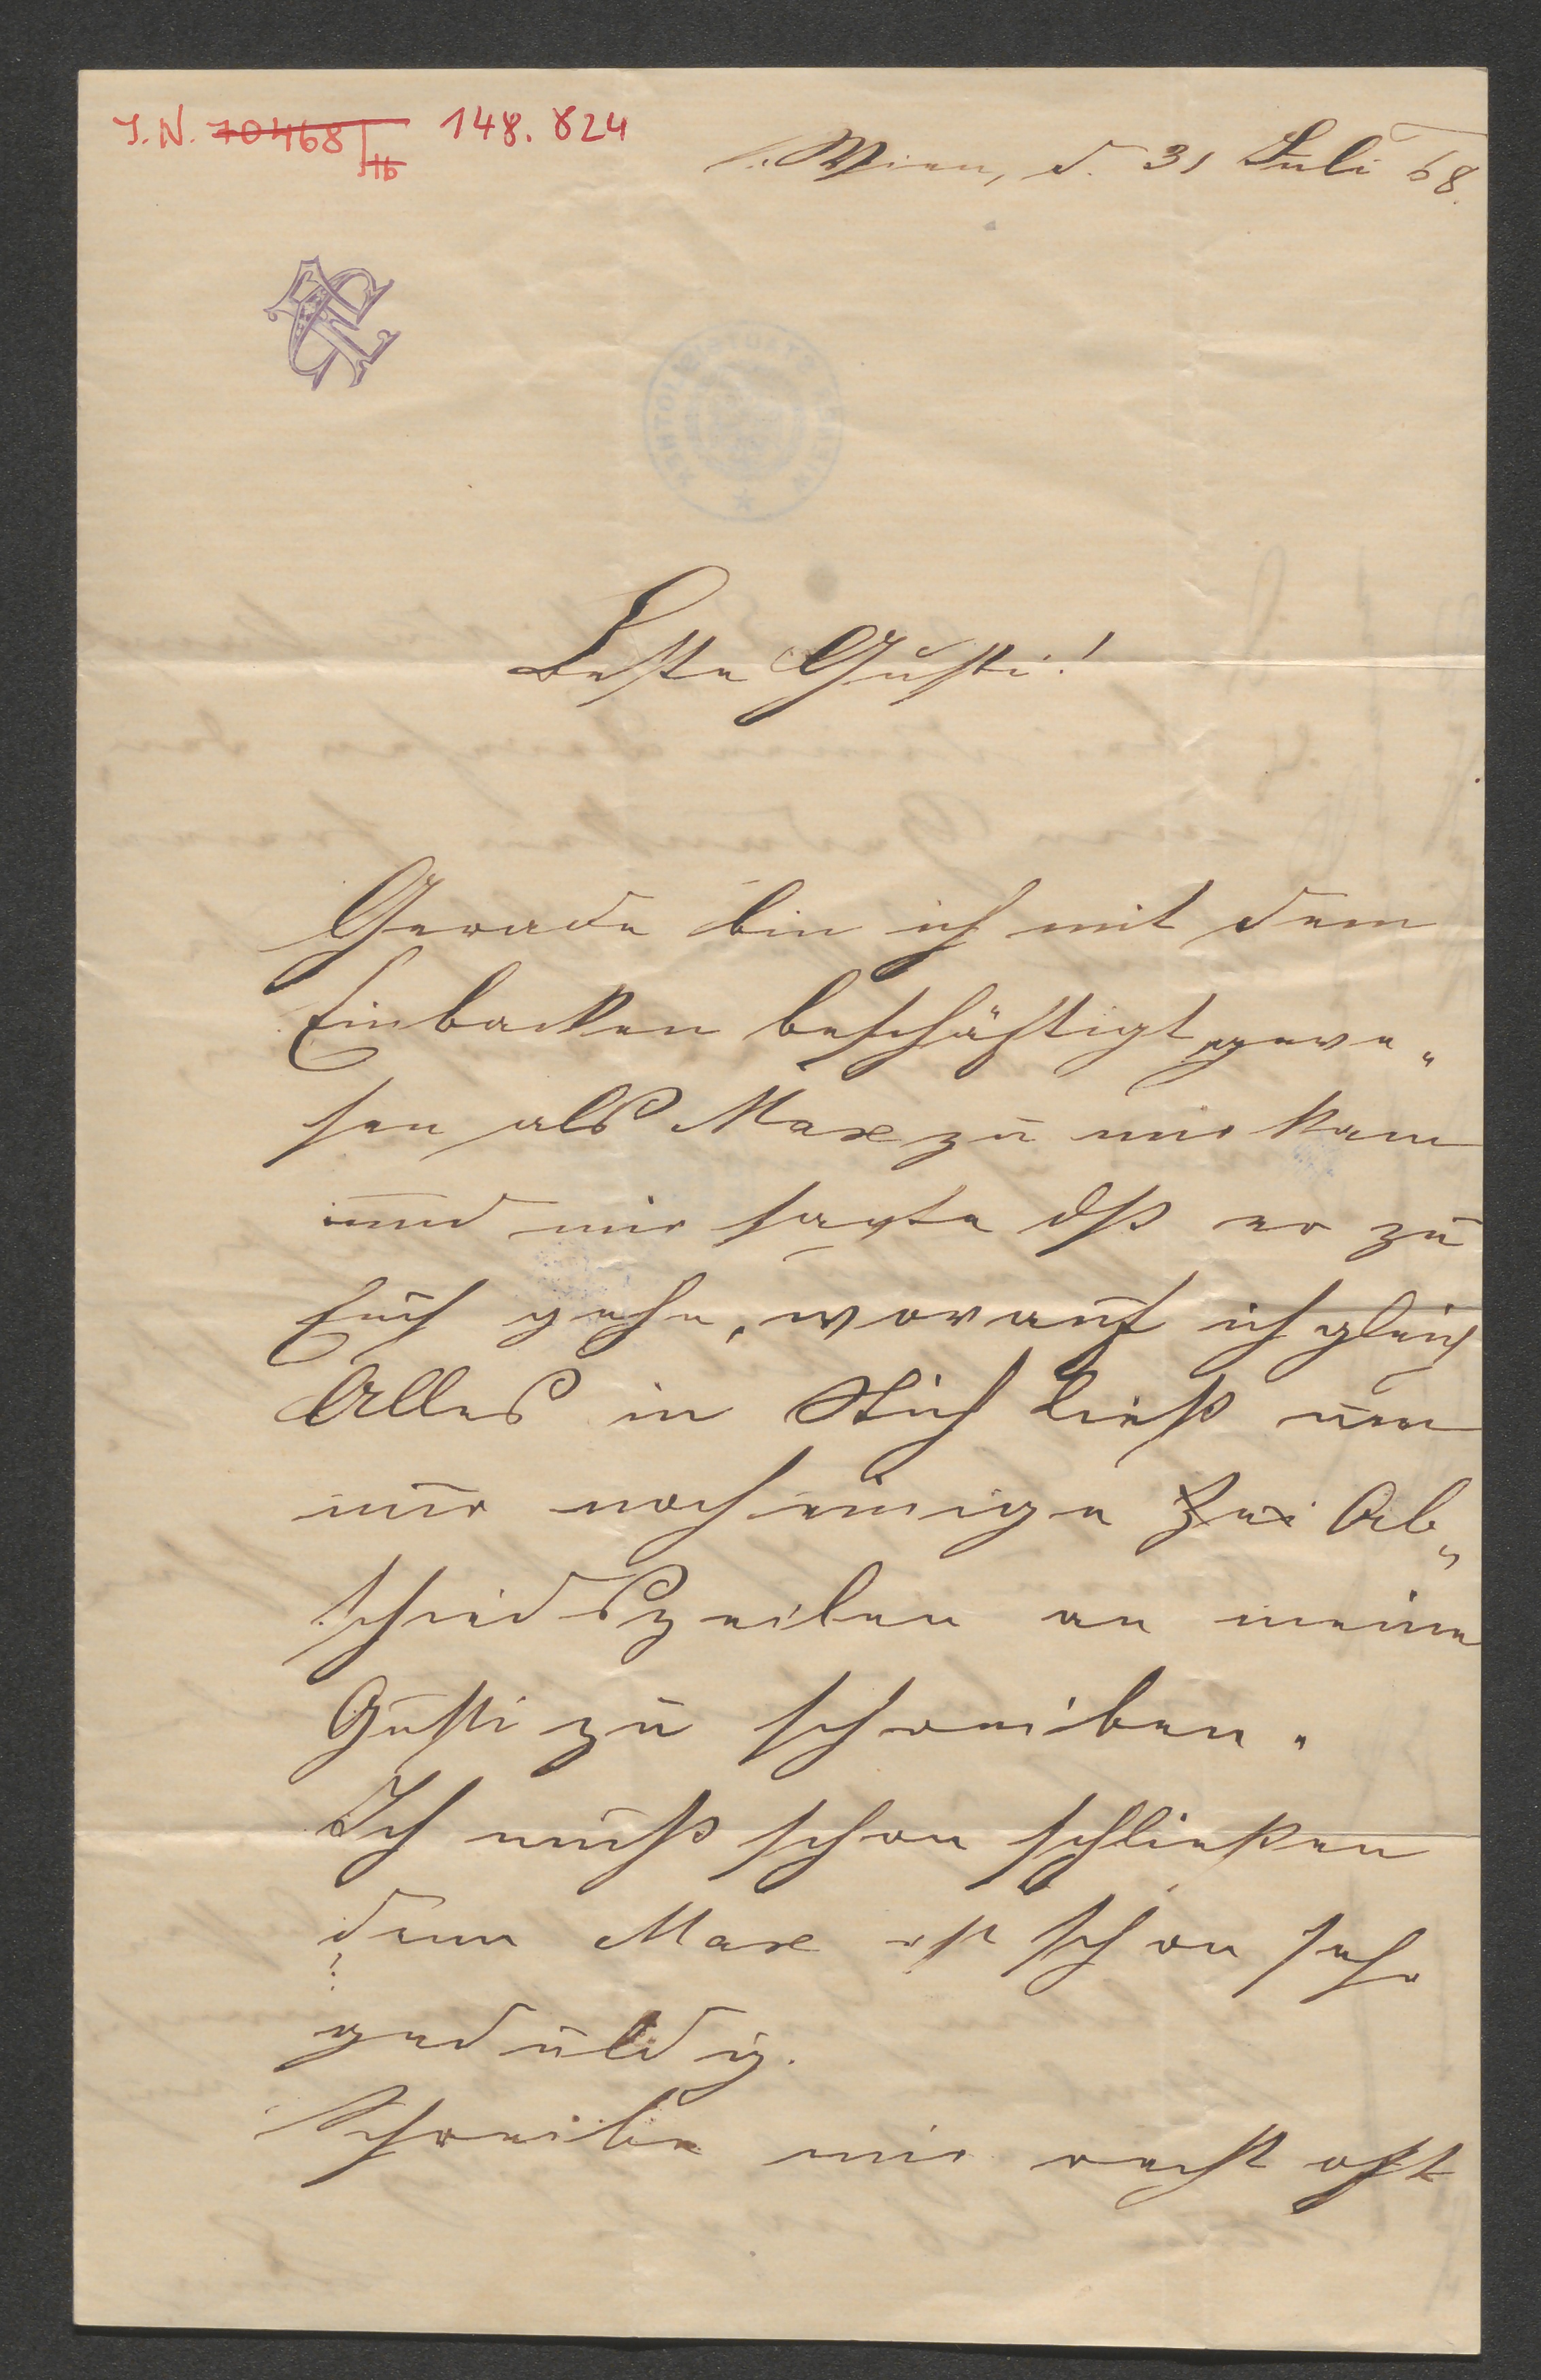 J.N. 70468/Hb 148.824
Wien, d. 31 Juli 68.
Beste Gusti!
Gerade bin ich mit dem
Einbacken beschäftigt gewe„
sen als Max zu mir kam
und mir sagte dß er zu
Euch gehe, worauf ich gleich
Alles in Stich ließ um
nur noch einige Zei Ab„
schiedszeilen an meine
Gusti zu schreiben.
Ich muß schon schließen
denn Max ist schon sehr
geduldig.
Schreibe mir recht oft